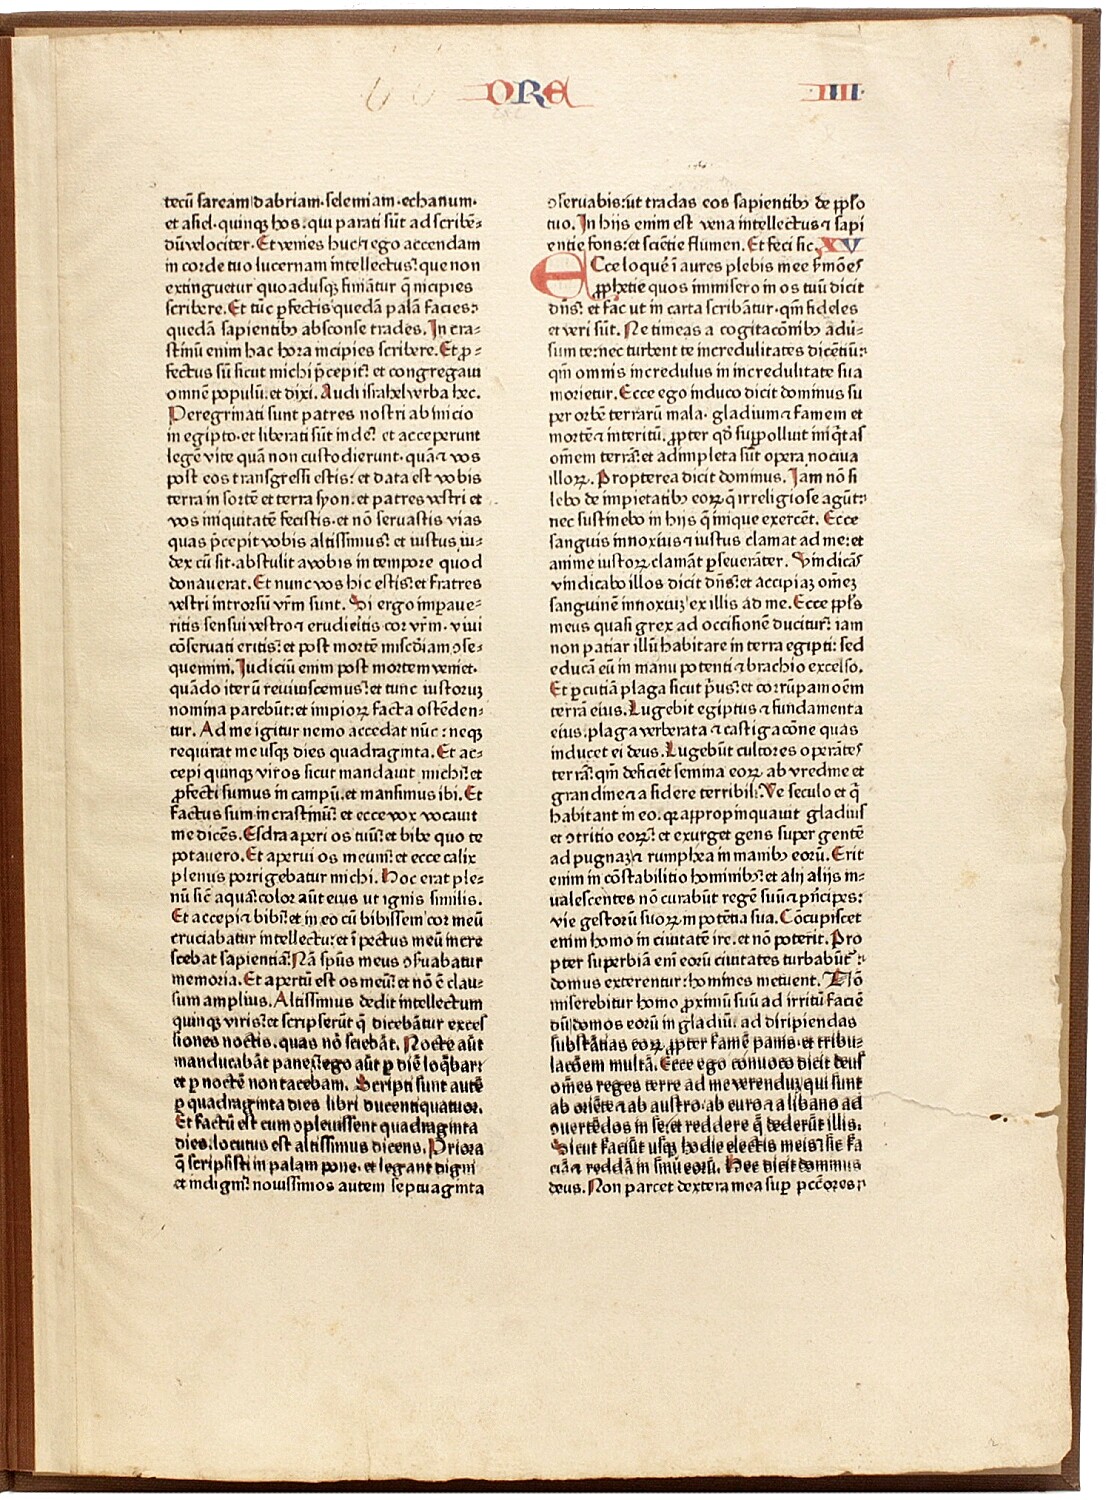 ORE
IIII
tecū saream dabriam·selemiam·echanum·
et asiel·quinqꝫ hos:qui parati sūt ad scribē⸗
dū velociter·Et venies huc⁊ ego accendam
in corde tuo lucernam intellectus:que non
extinguetur quo adusqꝫ finiātur q̄ incipies
scribere.Et tūc ꝑfectis quedā palā facies:
quedā sapientibꝫ absconse trades.In cra⸗
stinū enim hac hora incipies scribere.Et ꝓ⸗
fectus sū sicut michi p̄cepit: et congregaui
omnē populū.et dixi.Audi israhel verba hec.
Peregrinati sunt patres nostri ab inicio
in egipto·et liberati sūt inde: et acceperunt
legē vite quā non custodierunt·quā⁊ vos
post eos transgressi estis: et data est vobis
terra in sortē et terra syon·et patres vestri et
vos iniquitatē fecistis·et nō seruastis vias
quas p̄cepit vobis altissimus: et iustus iu⸗
dex cū sit·abstulit a vobis in tempore quod
donauerat.Et nunc vos hic estis:et fratres
vestri introrsū vr̄m sunt.Si ergo imꝑaue⸗
ritis sensui vestro⁊ erudieitis cor vr̄m·viui
cōseruati eritis:et post mortē misc̄diam ↄse⸗
quemini.Judiciū enim post mortem veniet·
quādo iterū reuiuiscemus:et tunc iustoruꝫ
nomina parebūt:et impioꝝ facta ostēden⸗
tur.Ad me igitur nemo accedat nūc:neqꝫ
requirat me usqꝫ dies quadraginta.Et ac⸗
cepi quinqꝫ viros sicut mandauit michi:et
ꝓfecti sumus in campū.et mansimus ibi.Et
factus sum in crastinū: et ecce vox vocauit
me dicēs.Esdra aperi os tuū:et bibe quo te
potauero.Et aperui os meum:et ecce calix
plenus porrigebatur michi.Hoc erat ple⸗
nū sic̄ aqua:color aūt eius ut ignis similis.
Et accepi⁊ bibi:et in eo cū bibissem cor meū
cruciabatur intellectu:et ī pectus meū incre
scebat sapientia:Nā spūs meus ↄseruabatur
memoria.Et apertū est os meū:et nō ē clau⸗
sum amplius.Altissimus dedit intellectum
quinqꝫ viris:et scripserūt q̄ dicebātur excel
siones noctis.quas nō sciebāt.Nocte aūt
manducabāt panē:ego aūt ꝑ diē loq̄bar:
et ꝑ noctē non tacebam.Scripti sunt autē
ꝑ quadraginta dies libri ducentiquatuor.
Et factū est cum ↄpleuissent quadraginta
dies.locutus est altissimus dicens.Priora
q̄ scripsisti in palam pone·et legant digni
et indigni:nouissimos autem septuaginta
ↄseruabis:ut tradas eos sapientibꝫ de ppl̄o
tuo.In hijs enim est vena intellectus⁊ sapi
entie fons:et sciētie flumen.Et feci sic.XV
ECce loquē ī aures plebis mee s̄mōes
ꝓphetie quos immisero in os tuū dicit
dn̄s: et fac ut in carta scribātur·qm̄ fideles
et veri sūt.Ne timeas a cogitacōnibꝫ adū⸗
sum te:nec turbent te incredulitates dicētiū:
qm̄ omnis incredulus in incredulitate sua
morietur.Ecce ego induco dicit dominus su
per orbē terrarū mala·gladium⁊ famem et
mortē⁊ interitū.ꝓpter qd̄ suꝑpolluit iniq̄tas
om̄em terrā:et adimpleta sūt opera nociua
illoꝝ.Propterea dicit dominus.Jam nō si
lebo de impietatibꝫ eoꝝ q̄ irreligiose agūt:
nec sustinebo in hijs q̄ inique exercēt.Ecce
sanguis innoxius⁊ iustus clamat ad me:et
anime iustoꝝ clamāt ꝑseuerāter.Vindicās
vindicabo illos dicit dn̄s:et accipiaꝫ om̄eꝫ
sanguinē innoxiuꝫ ex illis ad me.Ecce ppl̄s
meus quasi grex ad occisionē ducitur: iam
non patiar illū habitare in terra egipti:sed
educā eū in manu potenti⁊ brachio excelso.
Et ꝑcutiā plaga sicut p̄us:et corrūpam oēm
terrā eius.Lugebit egiptus⁊ fundamenta
eius.plaga verberata ⁊ castigacōne quas
inducet ei deus.Lugebūt cultores operātes
terrā:qm̄ deficiēt semina eoꝝ ab vredine et
grandine⁊ a sidere terribili.Ve seculo et q̄
habitant in eo.qꝛ appropinquauit gladius
et ↄtritio eoꝝ: et exurget gens super gentē
ad pugnaꝫ⁊ rumphea in manibꝫ eorū.Erit
enim in cōstabilitio hominibꝫ:et alij alijs in⸗
ualescentes nō curabūt regē suū⁊ p̄ncipes:
vie gestorū suoꝝ in potētia sua.Cōcupiscet
enim homo in ciuitatē ire.et nō poterit.Pro
pter superbiā em̄ eorū ciuitates turbabūt̄:
domus exterentur:homines metuent.Nō
miserebitur homo ꝓximū suū ad irritū faciē
dū domos eorū in gladiū.ad diripiendas
substātias eoꝝ ꝓpter famē panis et tribu⸗
lacōem multā.Ecce ego conuoco dicit deus
om̄es reges terre ad me verenduꝫ qui sunt
ab oriēte⁊ab austro:ab euro⁊ a libano ad
ↄuertēdos in se:et reddere q̄ dederūt illis.
Sicut faciūt usqꝫ hodie electis meis:sic fa
ciā⁊ reddā in sinū eorū.Hec dicit dominus
deus.Non parcet dextera mea suꝑ pcc̄ores: